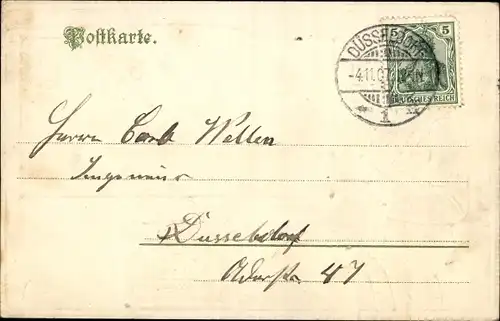 Postkarte.
5
DÜSSELDORF
-4.11.0
1
DEUTSCHES REICH
Herrn Carl Wellen
Ingenieur
Düsseldorf
Adersstr. 47